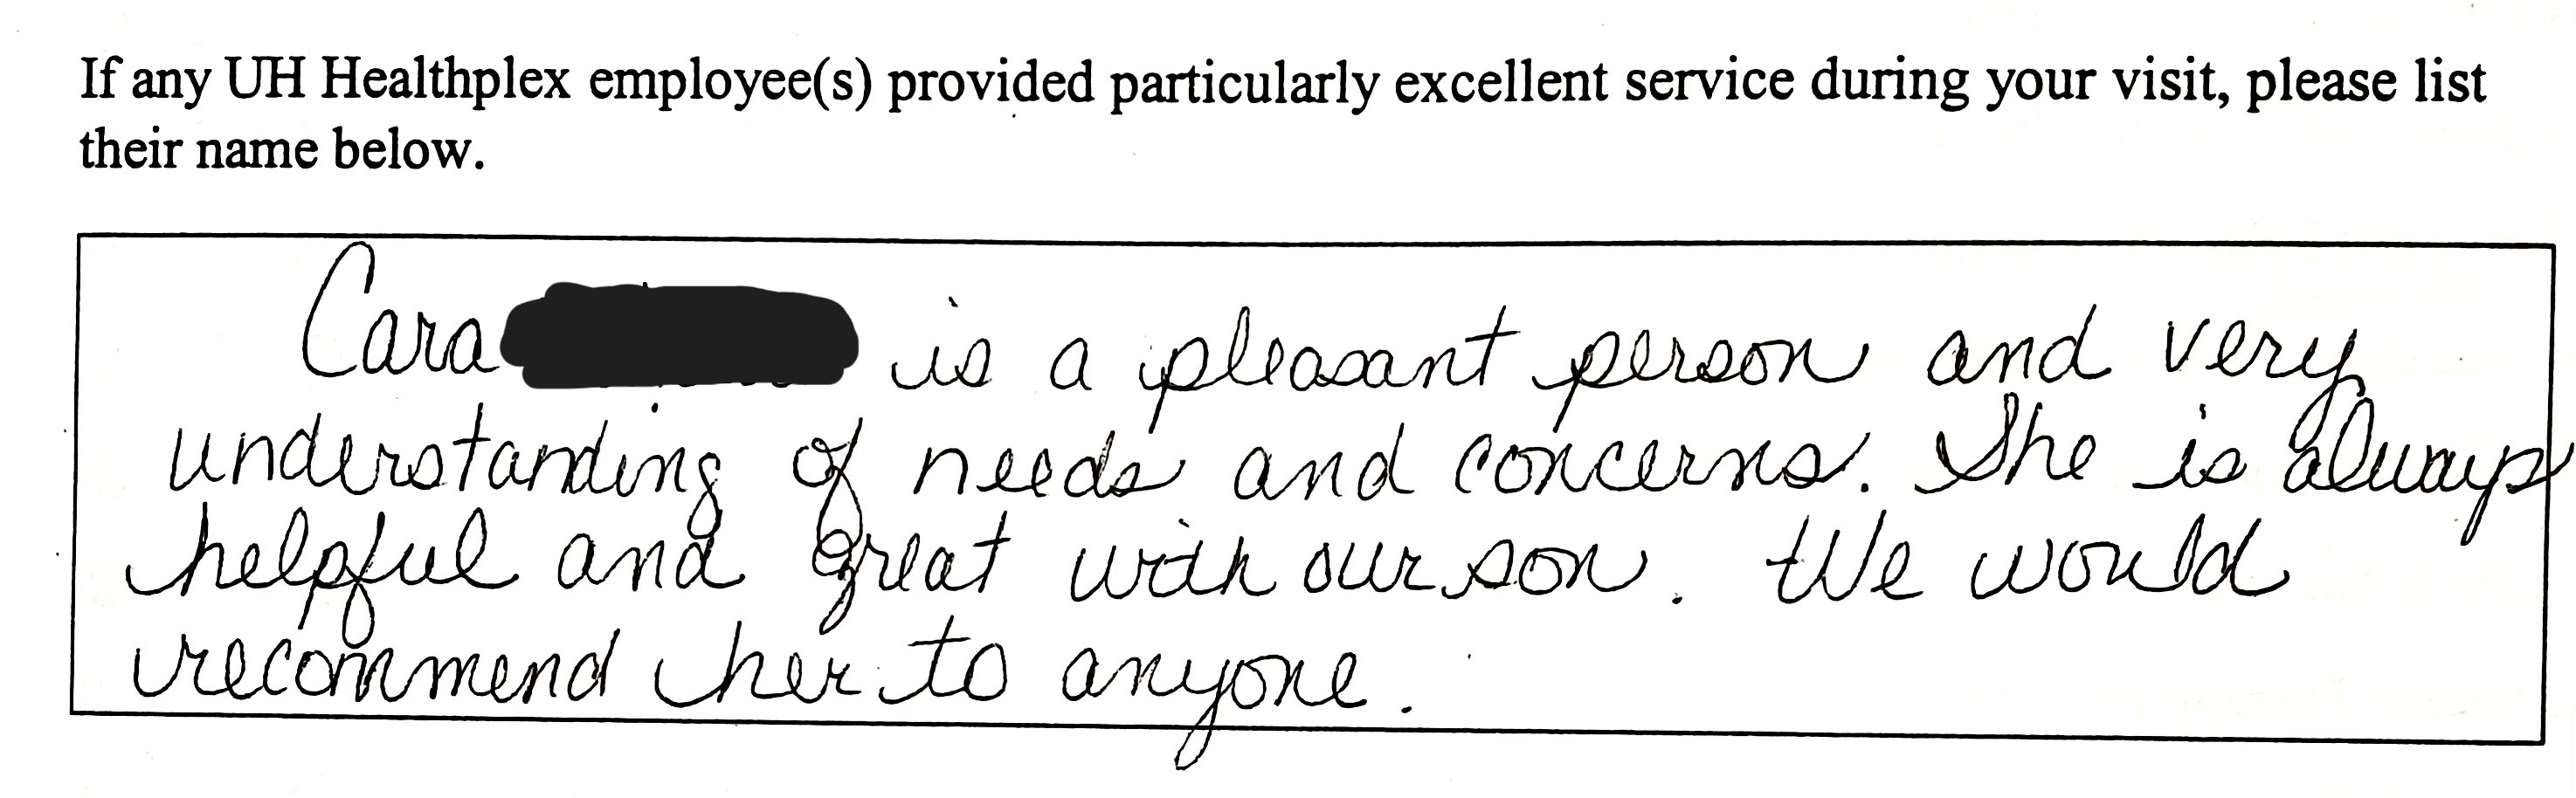 If any UH Healthplex employee(s) provided particularly excellent service during your visit, please list
their name below.
Cara is a pleasant person and very
understanding of needs and concerns. She is always
helpful and great with our son. We would
recommend her to anyone.